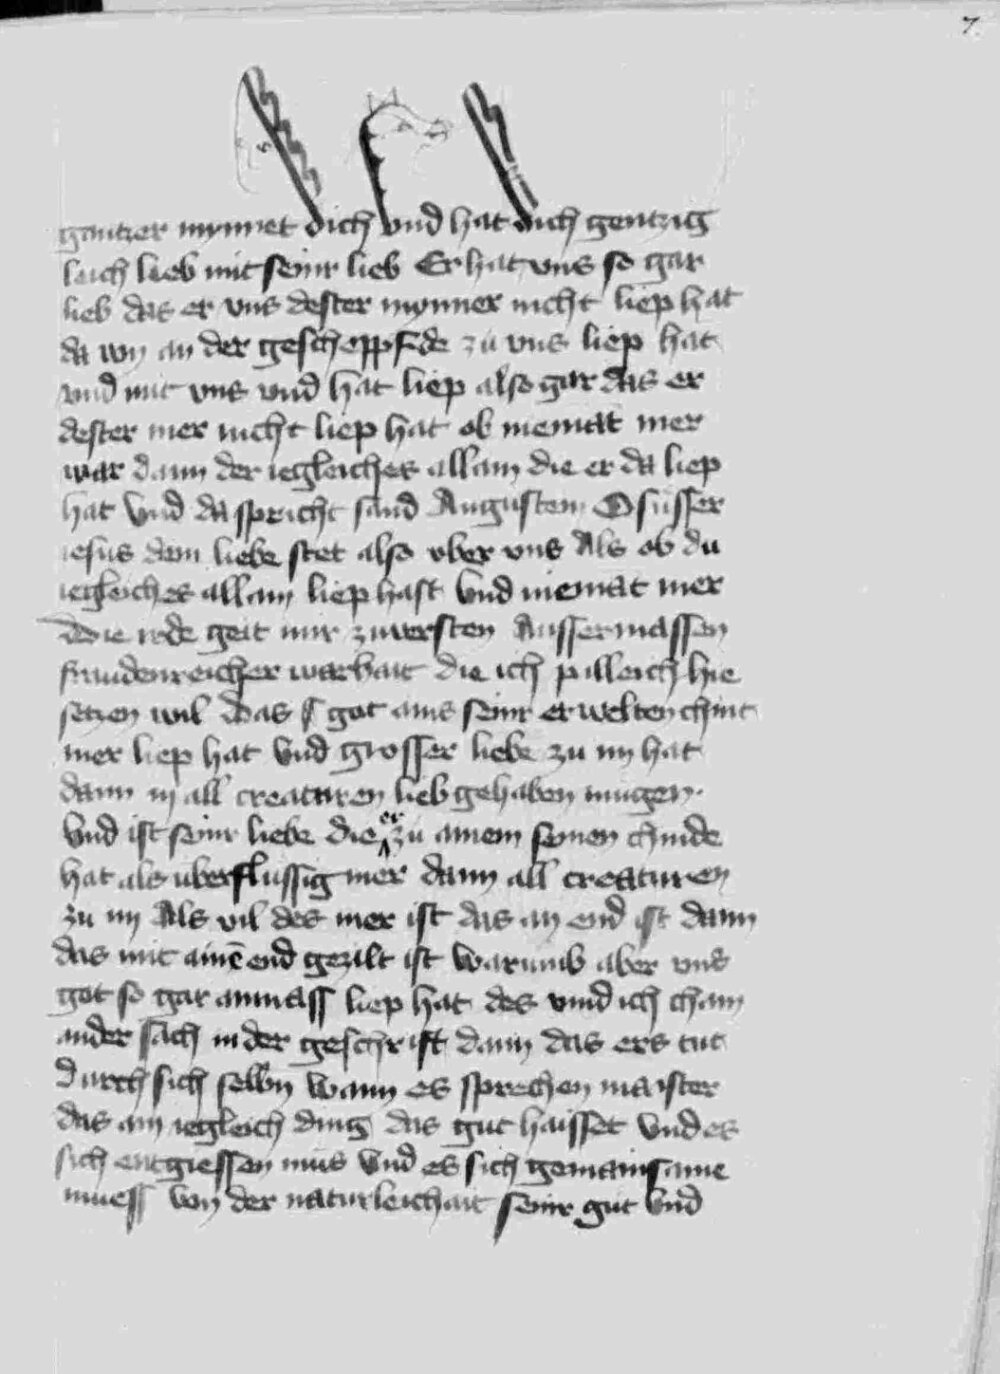 7
gantzer mynnet dich vnd hat dich gentzig
leich lieb mit seinr lieb Er hat vns so gar
lieb das er vns dester mynner nicht liep hat
da wy an der gescheppfde zu vns liep hat
vnd mit vns vnd hat liep also gar das er
dester mer nicht liep hat ob niemat mer
war dann der iegleiches allain die er da liep
hat vnd da spricht sand Augustein O süsser
iesus dein liebe stet also vber vns Als ob du
iegleiches allain liep hast vnd niemat mer
Die rede geit mir zuversten Aussermassen
fraudenreicher warhait die ich pilleich hie
setzen wil Das got ains seinr erwelten chint
mer liep hat vnd grosser liebe zu im hat
dann in all creaturen lieb gehaben mugen.
Vnd ist seinr liebe die er zu ainem seinen chinde
hat als überflussig mer dann all creaturen
zu im Als vil des mer ist das an end ist dann
das mit ainē end gezilt ist Warumb aber vns
got so gar anmass liep hat des vind ich chain
ander sach in der geschrift dann das ers tut
durch sich selbn Wann es sprechen maister
das ain iegleich ding das gut haisset vnd es
sich entgiessen mus vnd es sich gemainsame
muess von der naturleichait seinr gut vnd